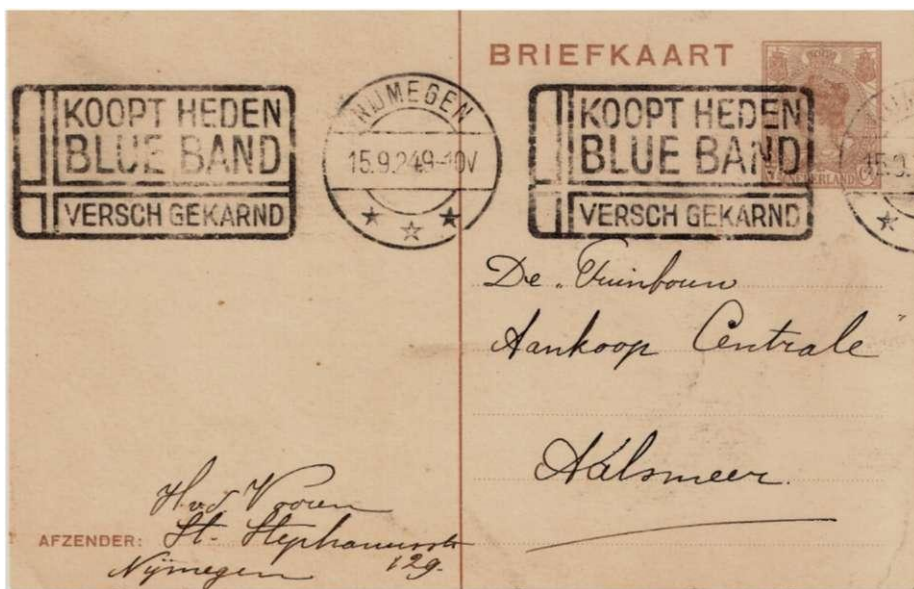 BRIEFKAART
KOOPT HEDEN
BLUE BAND
VERSCH GEKARND
NIJMEGEN
15.9.24 9-10V
KOOPT HEDEN
BLUE BAND
VERSCH GEKARND
NEDERLAND
15.9.
De „Tuinbouw
Aankoop Centrale"
Aalsmeer.
H. v. d. Vooren
AFZENDER: St. Stephanusstr
129.
Nijmegen